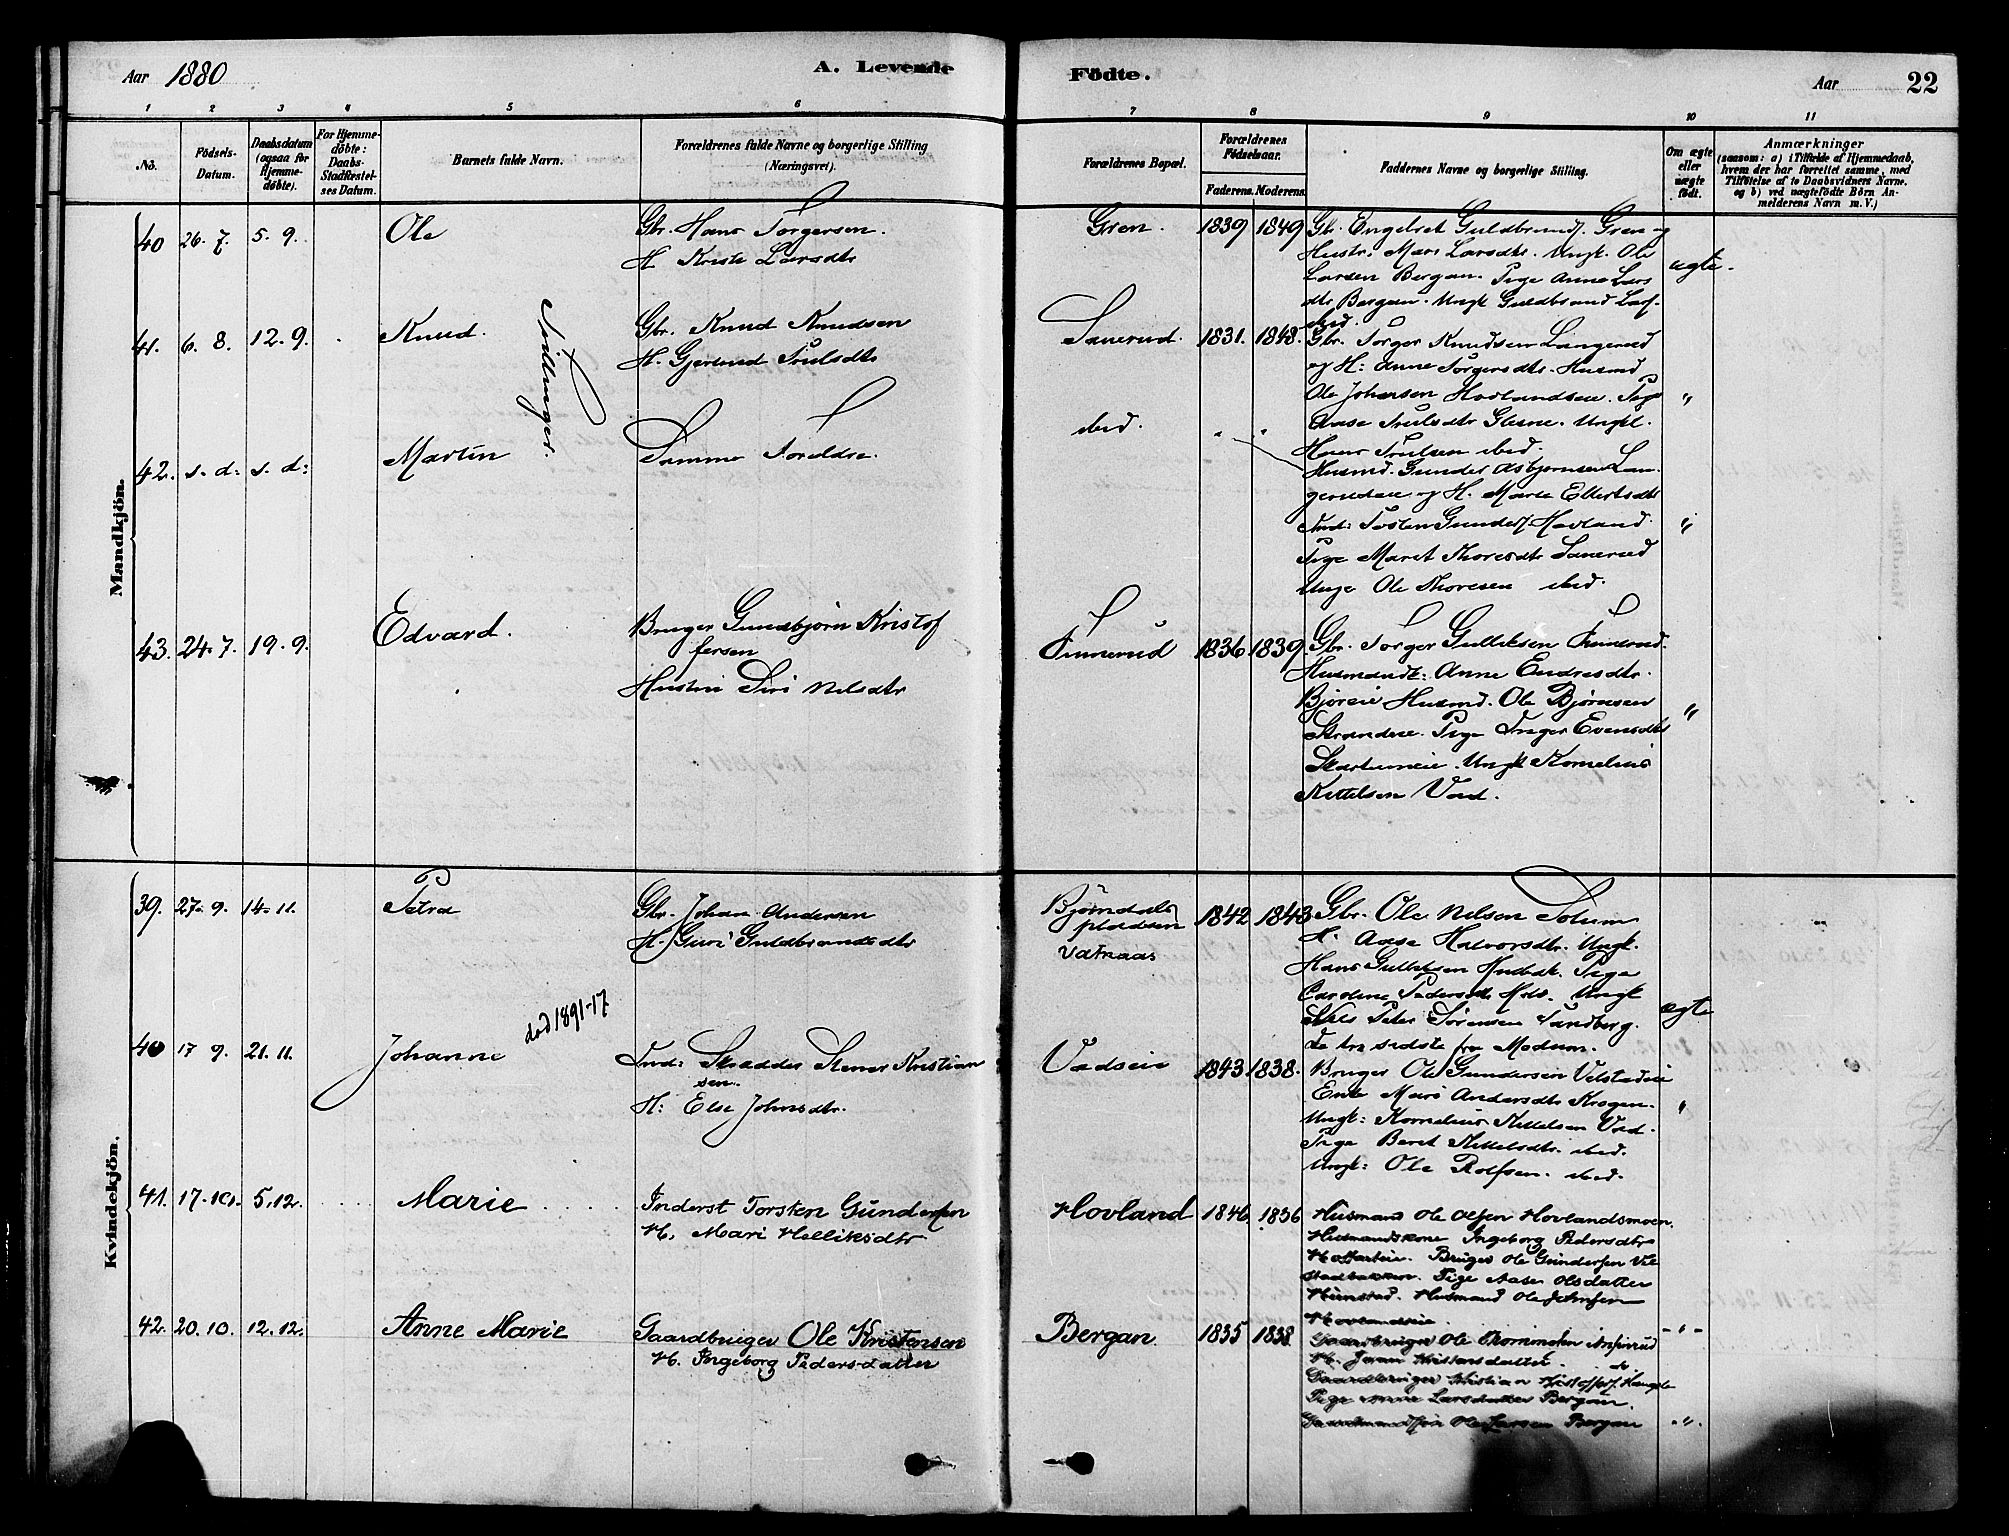 Aar 1880
A. Levende
Födte.
Aar
22
1 2 3 4 5 6 7 8 9 10 11
No.
Födsels-Datum.
Daabsdatum (ogsaa for Hjemme-döbte).
For Hjemme-döbte: Daabs-Stadfæstel-ses Datum.
Barnets fulde Navn.
Forældrenes fulde Navne og borgerlige Stilling (Næringsvei).
Forældrenes Bopæl.
Forældrenes Födselsaar.
Faderens. Moderens.
Faddernes Navne og borgerlige Stilling.
Om ægte eller uægte födt.
Anmærkninger
(saasom: a) i Tilfælde af Hjemmedaab,
hvem der har forrettet samme, med
Tilföielse af to Daabsvidners Navne.
og b) ved uægtefödte Börn An-
melderens Navn m. V.)
Mandkjön.
40 26. 7. 5. 9. Ole
Gbr. Hans Torgersen.
H. Kristi Larsdtr
Gren. 1839 1849
Gbr. Engebret Guldbrands. Gren og
Hustr. Mari Larsdtr. Ungk. Ole
Larsen Bergan. Pige Anne Lars
dtr Bergan. Ungk Guldbrand Lars.
ibid.
ægte.
41. 6. 8. 12. 9. Knud.
Tvillinger.
Gbr. Knud Knudsen
H. Gjertrud Trulsdtr
Sanerud. 1831. 1848.
Gbr. Torger Knudsen Langerud
og H: Anne Torgersdtr. Husmd
Ole Johansen Hovlandseie. Pige
Aase Trulsdtr Glesne. Ungkl.
Hans Trulsen ibid.
"
42. s. d. s. d: Martin
Samme Foreldre.
ibid. " "
Husmd. Gunder Asbjørnsen Lan-
gerudeie og H. Marie Ellertsdtr
Ind: Tosten Gunders. Hovland.
Pige Marit Thoresdtr Sanerud
Unge Ole Thoresen ibid.
"
43. 24. 7. 19. 9. Edvard.
Bruger Gundbjörn Kristof
fersen
Hustru Siri Nilsdtr
Finnerud 1836 1839.
Gbr. Torger Gulliksen Finnerud.
Husmandk: Anne Endresdtr.
Björeie Husmd. Ole Björnsen
Strandeie. Pige Inger Evensdtr
Ungk Kornelius
Kittelsen Vad.
"
Kvindekjön.
39. 27. 9. 14. 11. Petra
Gbr. Johan Andersen
H. Guri Guldbrandsdtr
Bjørndals
pladsen
Vatnaas
1842 1843
Gbr. Ole Nilsen Solum
H. Aase Halvorsdtr. Ungk.
Hans Gulliksen Pige
Caroline Pedersdtr Ungk
Nils Peter Sørensen Sandberg.
De tre sidste fra Modum.
ægte
40 17 9. 21. 11. Johanne
død 1891-17
Ind: Skrædder Stener Kristian
sen.
H: Else Johnsdtr.
Vadseie 1843 1838.
Bruger Ole Gundersen Velstadeie
Enke Mari Andersdtr Krogen.
Ungk: Kornelius Kittelsen Vad.
Pige Berit Kittelsdtr. ibid.
Ungk: Ole Rolfsen. ibid.
"
41. 17. 10. 5. 12. Marie
Inderst Torsten Gundersen
H. Mari Helliksdtr
Hovland 1846 1836
Husmand Ole Olsen Hovlandsmoen.
Husmandskone Ingeborg Pedersdtr
Bruger Ole Gundersen Vel
stadbakken. Pige Aase Olsdatter
Himstad. Husmand Ole Johnsen
Hovlandseie.
-"-
42. 20. 10. 12. 12. Anne Marie
Gaardbruger Ole Kristensen
H. Ingeborg Pedersdatter
Bergan. 1835 1838
Gaardbruger Ole Thommesen Anfinrud
H. Jøran Kristensdatter. do.
Gaardbruger Kristian Kristoffers.
Pige Anne Larsdatter Bergan.
Gaardmandssøn Ole Larsen Bergan
-"-